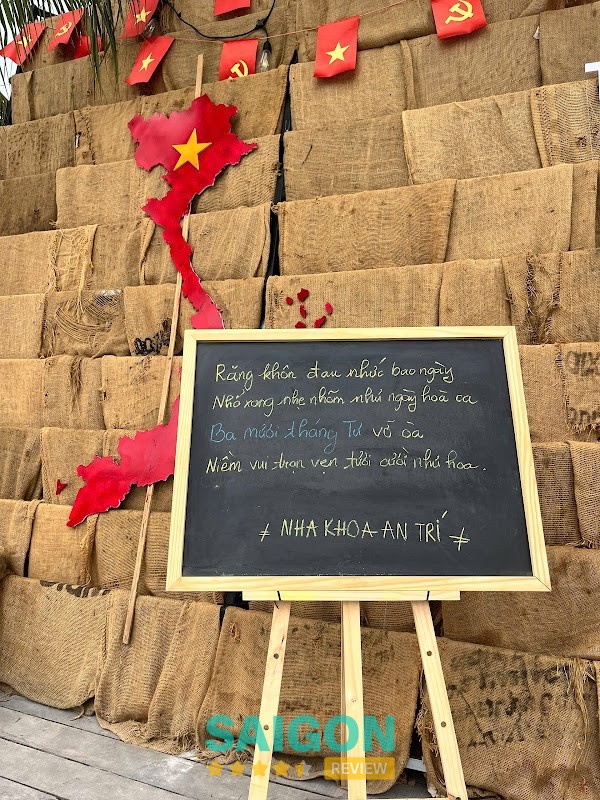 Răng khôn đau nhức bao ngày
Nhổ xong nhẹ nhõm như ngày hoà ca
Ba mươi tháng Tư vỡ òa
Niềm vui trọn vẹn tươi cười như hoa.
# NHA KHOA AN TRÍ #
SAIGON
REVIEW